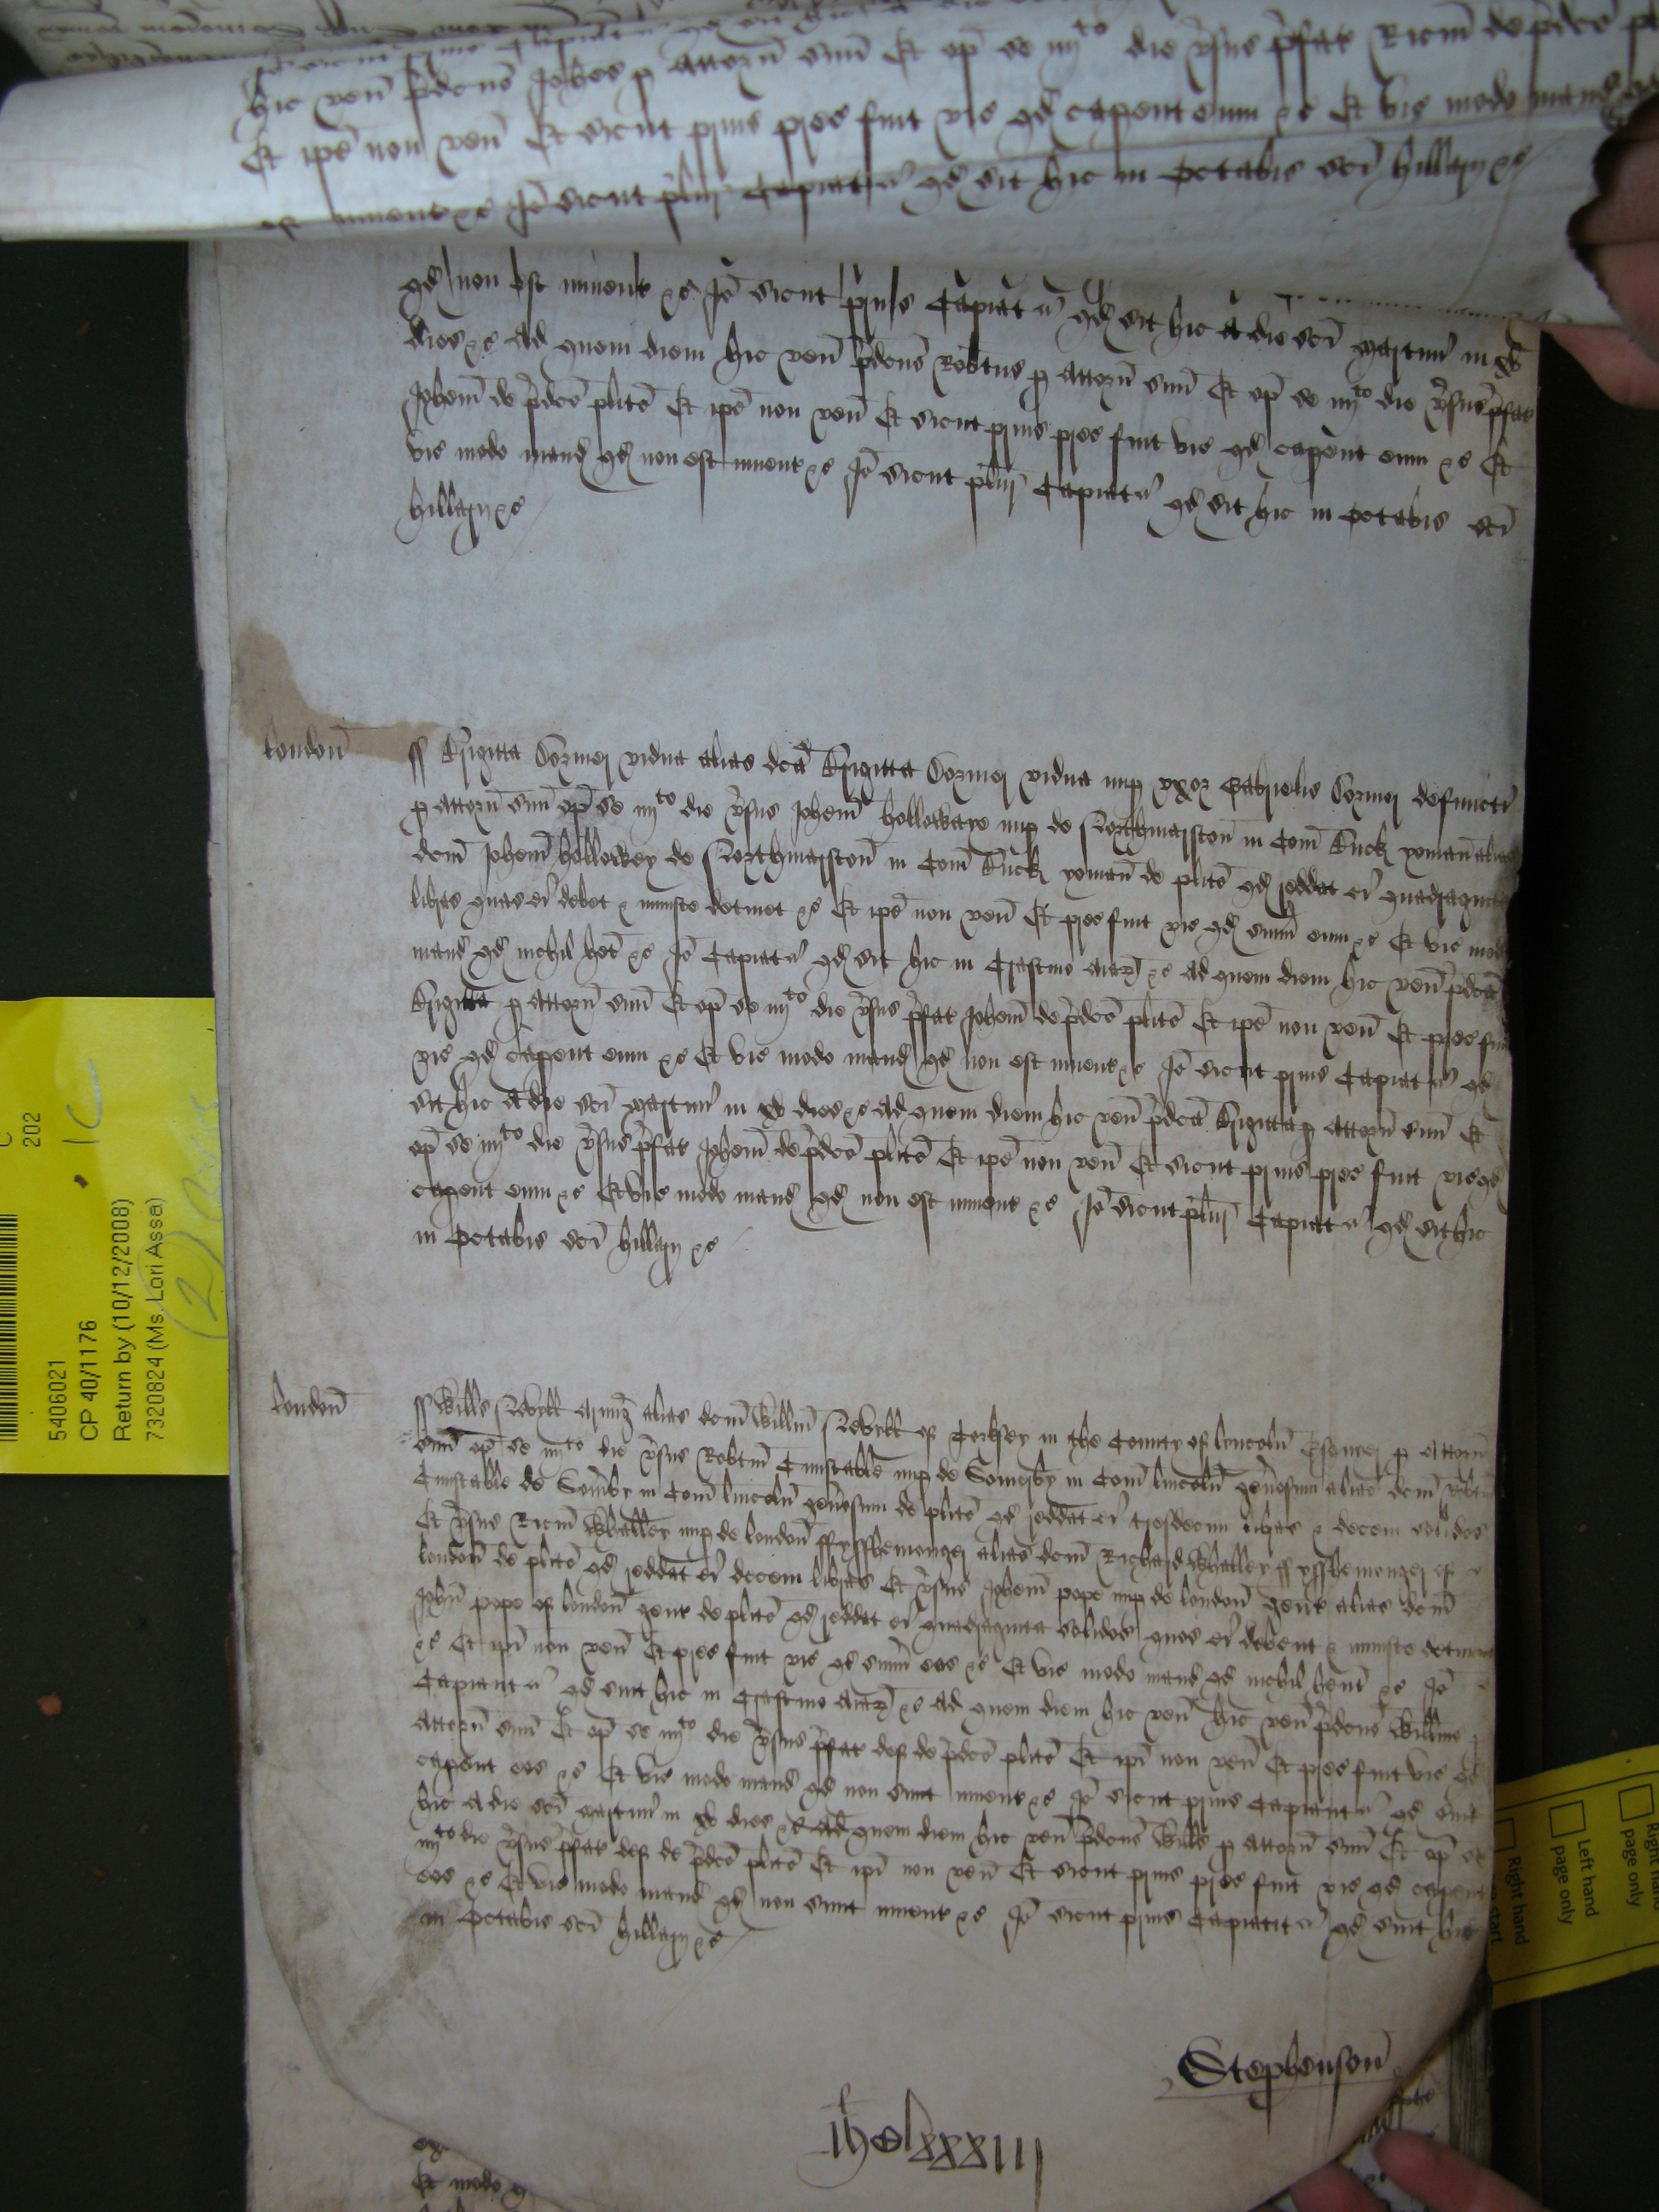 hic ven̄ p̄dcūs Joħes p̱ attorñ suū Et op̄ se iiij^to die v̄sus p̄fat Ricm̄ de p̄dcō pl
Et ip̄e non ven̄ Et sicut prius prec̄ fuit vic̄ qd̄ caperet eum ⁊c̄ Et vic̄ modo mand qd̄
est invent ⁊c̄ Jō sicut plur̄ Capiat̄ʳ qd̄ sit hic in Octabis sc̄i Hillarij ⁊c̄
qd̄ non est invent ⁊c̄ Jō sicut prius Capiat̄ʳ qd̄ sit hic A die sc̄i Martini in xv
dies ⁊c̄ Ad quem diem hic ven̄ p̄dcūs Rob̄tus p̱ attorñ suū Et op̄ se iiij^to die v̄sus p̄fat
Joħem̄ de p̄dcō plitō Et ip̄e non ven̄ Et sicut prius prec̄ fuit vic̄ qd̄ caperet eum ⁊c̄ Et
vic̄ modo mand qd̄ non est invent ⁊c̄ Jō sicut plur̄ Capiat̄ʳ qd̄ sit hic in Octabis sc̄i
Hillarij ⁊c̄
london̄
ss Brigitta Dormer vidua alias dc̄a Brigitta Dormer vidua nup̱ vxor Gabrielis Dormer defuncti
p̱ attorñ suū op̄ se iiij^to die v̄sus Joħem̄ Hollowaye nup̱ de Northmarston̄ in Com̄ Buck yoman̄ alias
dcm̄ Joħem̄ Hollowey de Northmarston̄ in Com̄ Buck yoman̄ de plitō qd̄ reddat ei quadraginta
libras quas ei debet ⁊ iniuste detinet ⁊c̄ Et ip̄e non ven̄ Et prec̄ fuit vic̄ qd̄ sum̄ eum ⁊c̄ Et vic̄ modo
mand qd̄ nichil het̄ ⁊c̄ Jō Capiat̄ʳ qd̄ sit hic in Crastino Aiaꝝ ⁊c̄ Ad quem diem hic ven̄ p̄dcā
Brigitta p̱ attorñ suū Et op̄ se iiij^to die v̄sus p̄fat Joħem̄ de p̄dcō plitō Et ip̄e non ven̄ Et prec̄ fuit
vic̄ qd̄ caperet eum ⁊c̄ Et vic̄ modo mand qd̄ non est invent ⁊c̄ Jō sicut prius Capiat̄ʳ qd̄
sit hic A die sc̄i Martini in xv dies ⁊c̄ Ad quem diem hic ven̄ p̄dcā Brigitta p̱ attorñ suū Et
op̄ se iiij^to die v̄sus p̄fat Joħem̄ de p̄dcō plitō Et ip̄e non ven̄ Et sicut prius prec̄ fuit vic̄ qd̄
caperet eum ⁊c̄ Et vic̄ modo mand qd̄ non est invent ⁊c̄ Jō sicut plur̄ Capiat̄ʳ qd̄ sit hic
in Octabis sc̄i Hillarij ⁊c̄
london̄
ss Willūs Nevyll armig̃ alias dcm̄ Willm̄ Nevyll of Torksey in the County of lincoln̄ Esquier p̱ Attorñ
suū op̄ se iiij^to die v̄sus Rob̄tm̄ Cunstable nup̱ de Somersby in Com̄ lincoln̄ gen̄osum alias dcm̄ Rob̄tm̄
Cunstable de Som̄by in Com̄ lincoln̄ gen̄osum de plitō qd̄ reddat ei tresdecim libras ⁊ decem solidos
Et v̄sus Ricm̄ Whaller nup̱ de london̄ ffysshemonger alias dcm̄ Richard Whaller ffysshemonger of
london̄ de plitō qd̄ reddat ei decem libras Et v̄sus Joħem̄ pope nup̱ de london̄ gent alias dcm̄
Joħn̄ pope of london̄ gent de plitō qd̄ reddat ei quadraginta solidos quos ei debent ⁊ iniuste detinent
⁊c̄ Et ip̄i non ven̄ Et prec̄ fuit vic̄ qd̄ sum̄ eos ⁊c̄ Et vic̄ modo mand qd̄ nichil hent̄ ⁊c̄ Jō
Capiant̄ʳ qd̄ sint hic in Crastino Aiaꝝ ⁊c̄ Ad quem diem hic ven̄ hic ven̄ p̄dcūs Willms p̱
Attorñ suū Et op̄ se iiij^to die v̄sus p̄fat def de p̄dcō plitō Et ip̄i non ven̄ Et prec̄ fuit vic̄ qd̄
caperet eos ⁊c̄ Et vic̄ modo mand qd̄ non sunt invent ⁊c̄ Jō sicut prius Capiant̄ʳ qd̄ sint
hic A die sc̄i Martini in xv dies ⁊c̄ Ad quem diem hic ven̄ p̄dcūs Willūs p̱ attorñ suū Et op̄ se
iiij^to die v̄sus p̄fat def de p̄dcō plitō Et ip̄i non ven̄ Et sicut prius prec̄ fuit vic̄ qd̄ caperet
eos ⁊c̄ Et vic̄ modo mand qd̄ non sunt invent ⁊c̄ Jō sicut prius Capiant̄ʳ qd̄ sint hic
in Octabis sc̄i Hillarij ⁊c̄
Stephenson̄
lxxxiij
Et modo
202
5406021
CP 40/1176
Return by (10/12/2008)
7320824 (Ms. Lori Assa)
Right hand
start
Left hand
page only
Right hand
page only